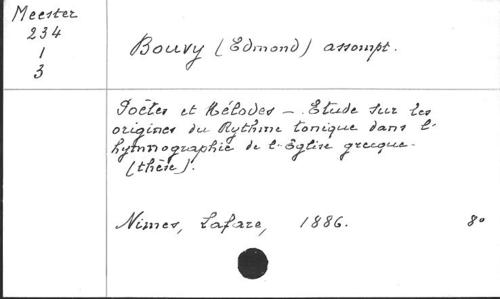 Meester
234
1
3
Bouvy (Edmond) assompt.
Poètes et Mélodes - Etude sur les
origines du Rythme tonique dans l'
hymnographie de l'Eglise grecque.
(thèse).
Nimes, Lafare, 1886. 8°